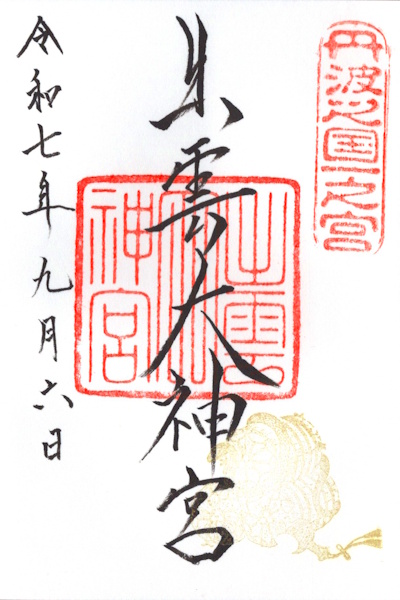 丹波之國一之宮
出雲大神宮
出雲大神宮
令和七年九月六日